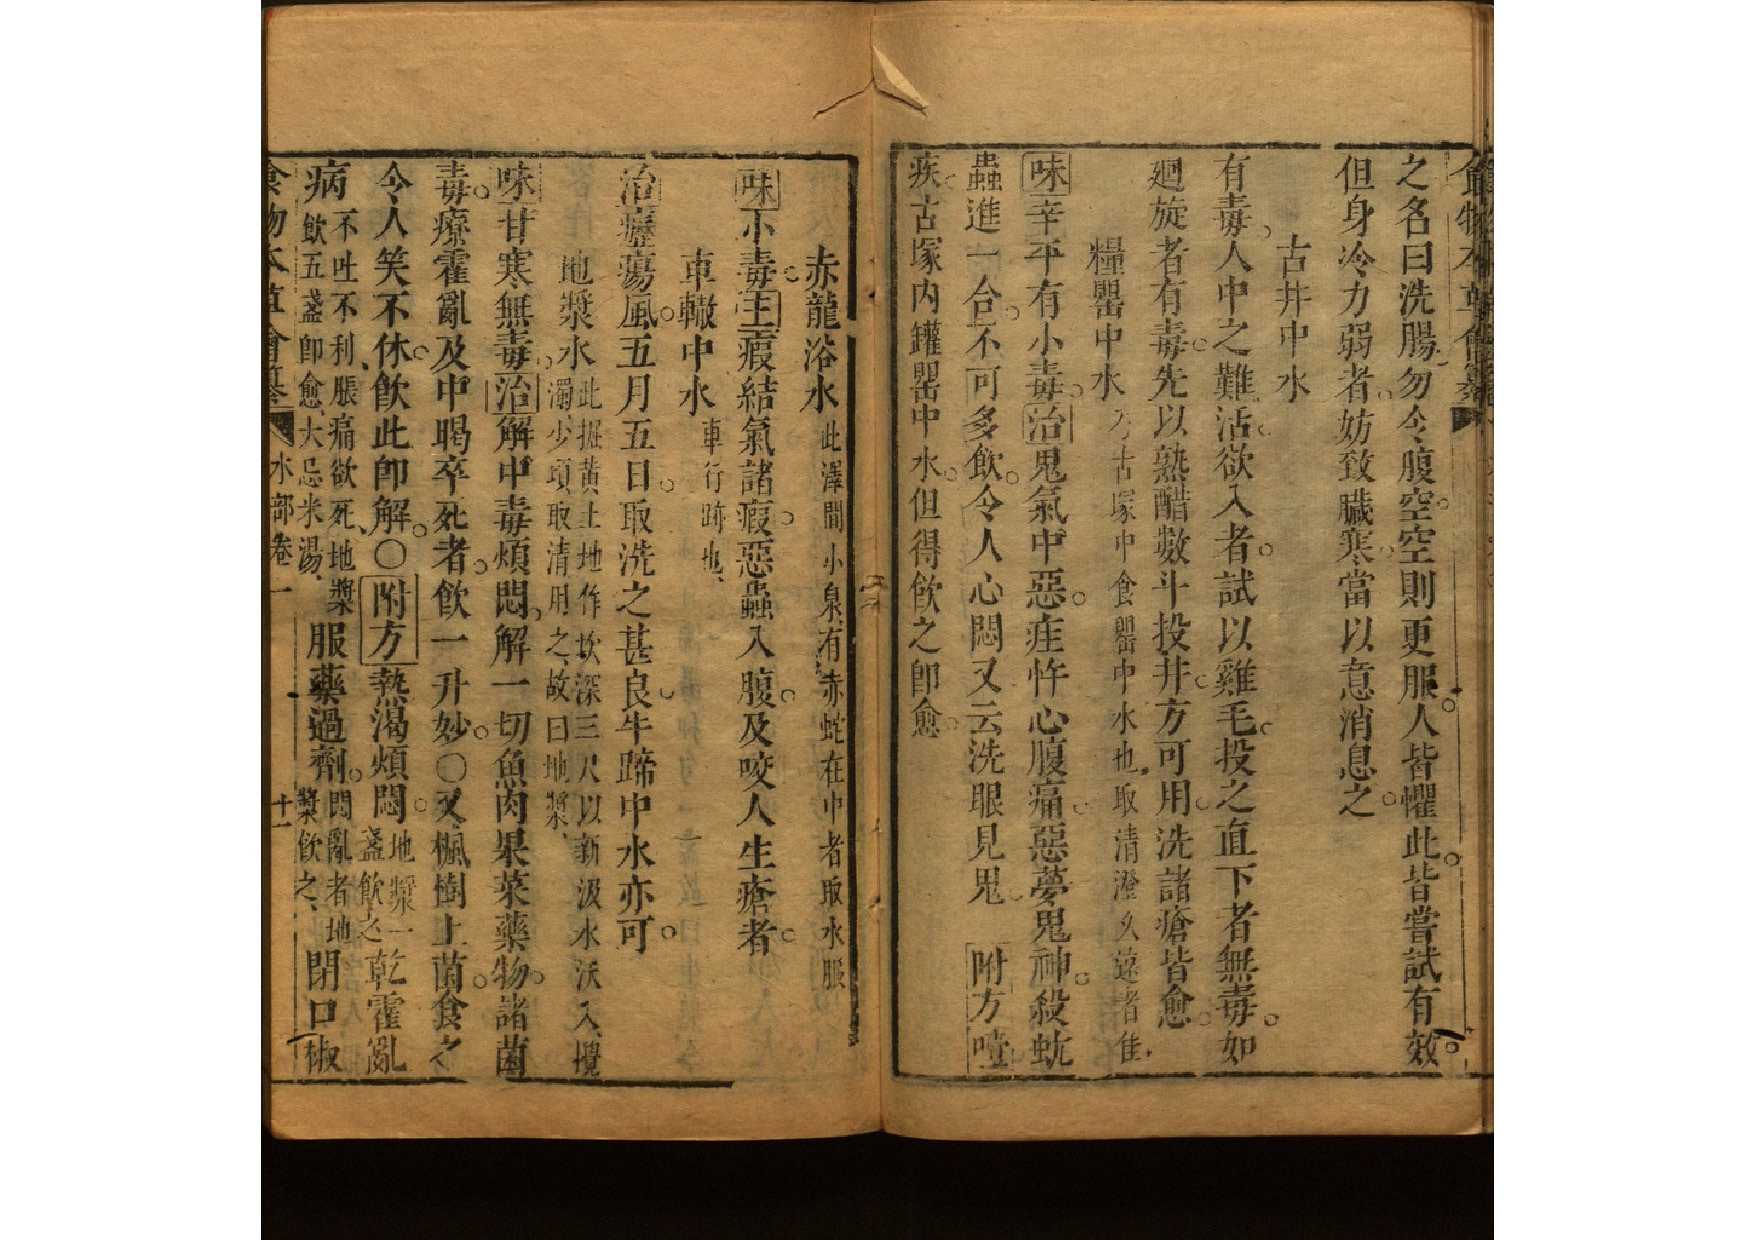 之名曰洗腸勿令腹空空則更服人皆懼此皆嘗試有效
但身冷力弱者妨致臟寒當以意消息之
古井中水
有毒人中之難活欲入者試以雞毛投之直下者無毒如
廻旋者有毒先以熟醋數斗投井方可用洗諸瘡皆愈
糧罌中水 乃古塚中食罌中水也取清澄久遠者佳
味辛平有小毒治鬼氣中惡疰忤心腹痛惡夢鬼神殺蚘
蟲進一合不可多飲令人心悶又云洗眼見鬼 附方噎
疾古塚內罐罌中水但得飲之卽愈
赤龍浴水 此澤間小泉有赤蛇在中者取水服
味小毒主瘕結氣諸瘕惡蟲入腹及咬人生瘡者
車轍中水 車行跡也
治癧瘍風五月五日取洗之甚良牛蹄中水亦可
地漿水 此掘黃土地作坎深三尺以新汲水沃入攪
濁少頃取清用之故曰地漿
味甘寒無毒治解中毒煩悶解一切魚肉果菜藥物諸菌
毒療霍亂及中暍卒死者飲一升妙〇又楓樹上菌食之
令人笑不休飲此卽解〇附方熱渴煩悶 地漿一盞飲之 乾霍亂
病 不吐不利脹痛欲死地漿飲五盞卽愈大忌米湯 服藥過劑 悶亂者地漿飲之 閉口椒
食物本草會纂 水部卷一 十一